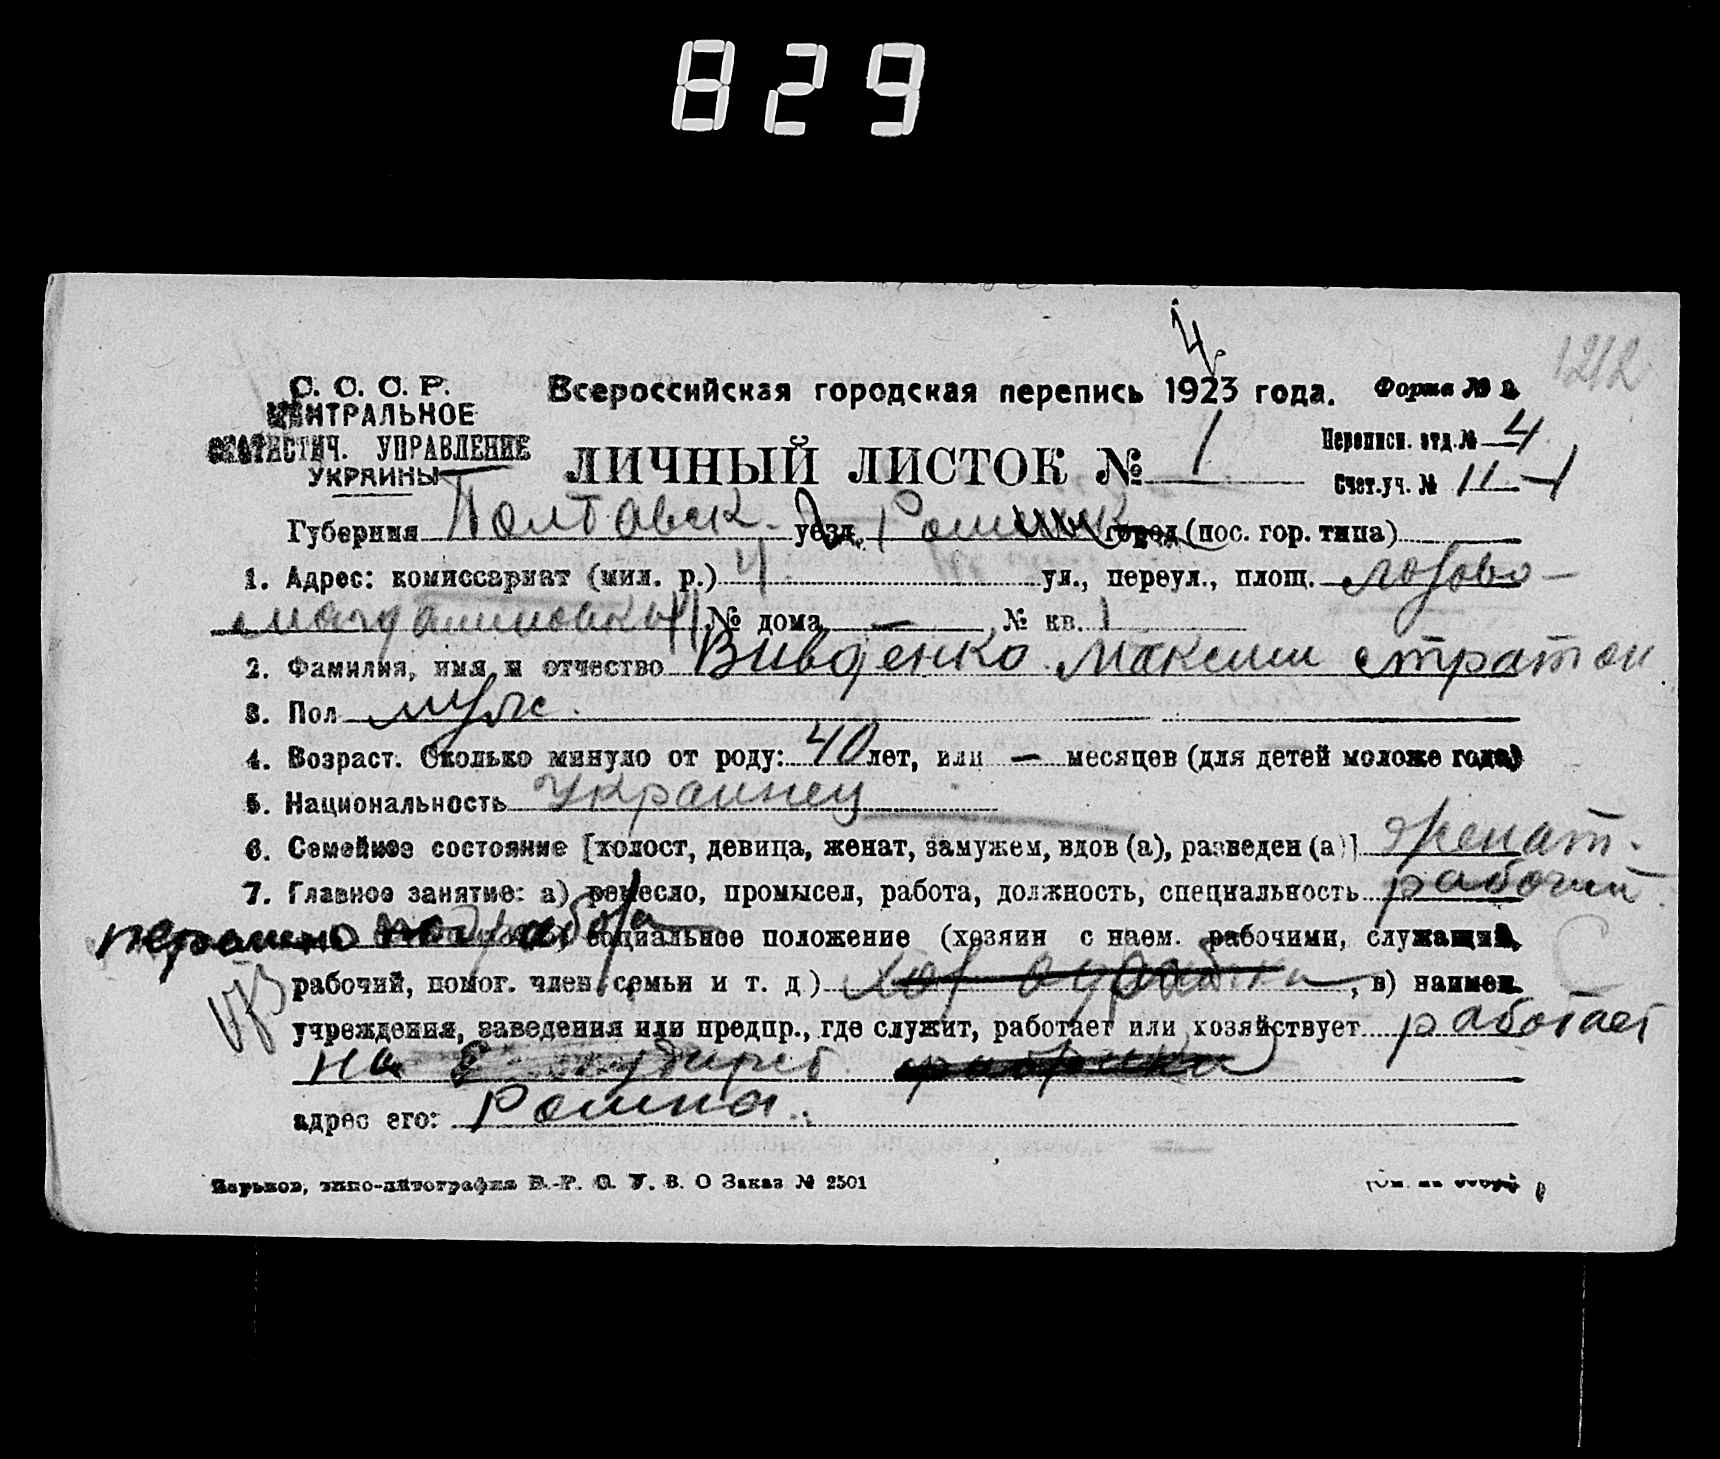 829
4
1212
С. С. С. Р.
ЦЕНТРАЛЬНОЕ
СТАТИСТИЧ. УПРАВЛЕНИЕ
УКРАИНЫ
Всероссийская городская перепись 1923 года.
Форма № 2
ЛИЧНЫЙ ЛИСТОК № 1
Переписн. отд. № 4
Счет. уч. № 11-1
Губерния Полтавск. уезд. город (пос. гор. типа)
1. Адрес: комиссариат (мил. р.) 4 ул., переул., площ. Лозово-
№ дома — № кв. 1
2. Фамилия, имя и отчество Вивденко Максим Стратон
3. Пол муж.
4. Возраст. Сколько минуло от роду: 40 лет, или — месяцев (для детей моложе года)
5. Национальность Украинец
6. Семейное состояние [холост, девица, женат, замужем, вдов (а), разведен (а)] женат.
7. Главное занятие: а) ремесло, промысел, работа, должность, специальность рабочий
социальное положение (хозяин с наем. рабочими, служащий,
рабочий, помог. член семьи и т. д) , в) наимен.
учреждения, заведения или предпр., где служит, работает или хозяйствует работает
на фабрики
адрес его: Ромна
Харьков, типо-литография В. Р. С. У. В. О Заказ № 2501